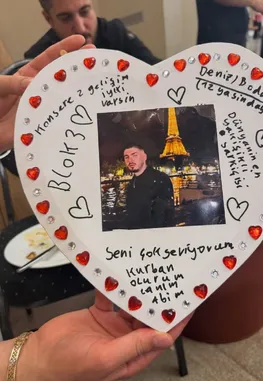 Konsere 2 gelişim
iyiki
varsın
BLOK3
Deniz/Bodr
(12 yaşında)
Dünyanın en
yakışıklı
şarkıcısı
Seni çok seviyorum
Kurban
olurum
canım
abim